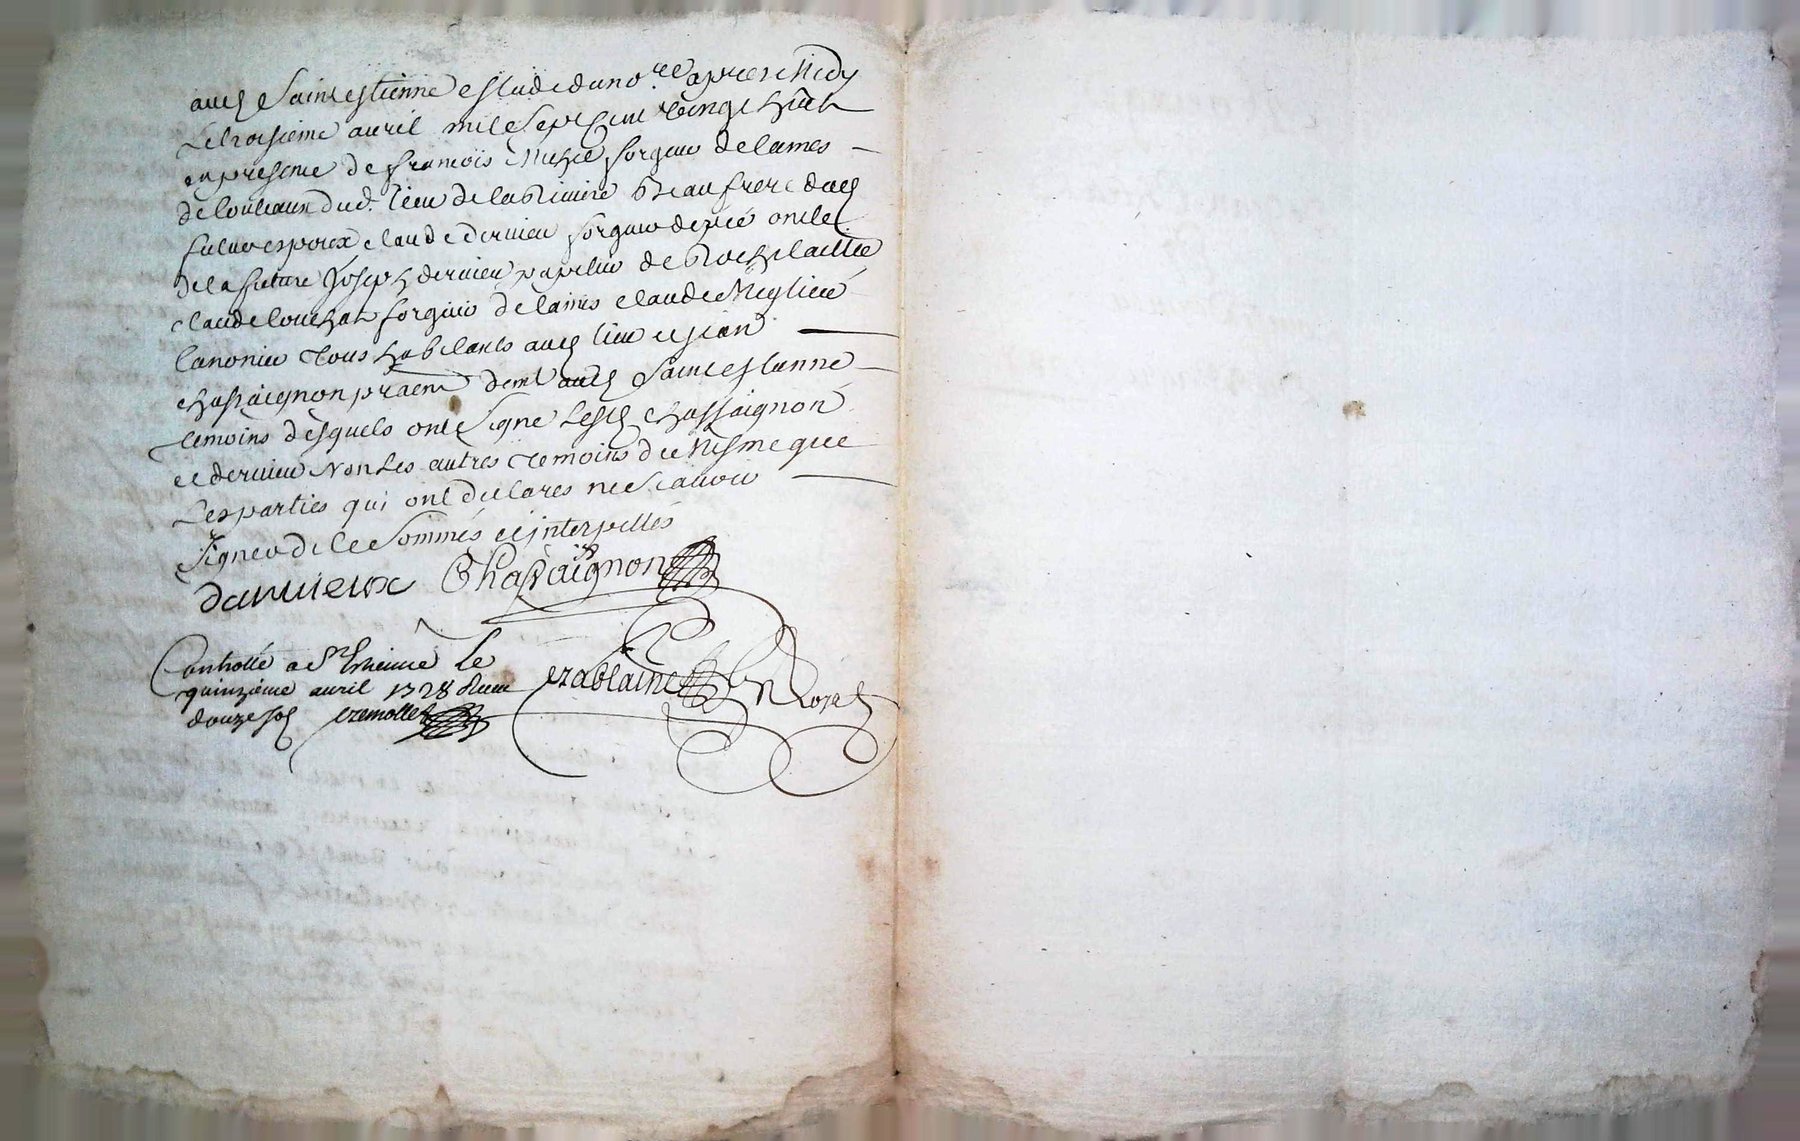 aud Sainct estienne estude du no.re apres Midy
Le troisieme avril mil Sept Cent vingt huit
en presence de francois forgeur de lames
de Couteaux dud. lieu de la Riviere Beaufrere dud
futur espoux claude dervieu forgeur depée oncle
de la future Joseph dervieu papetier de Rochetaillée
claude Couchat forgeur de lames claude
Canonier Tous habitants aud lieu et jean
chassaignon praen demt aud Sainct estienne
temoins desquels ont Signe Lesd chassaignon
et dervieu Non Les autres temoins de Mesme que
Les parties qui ont declares ne Scavoir
Signer de ce Sommés et interpellés
dervieux Chassaignon
Controllé a St Etienne le
quinzieme avril 1728 Receu
douze sol